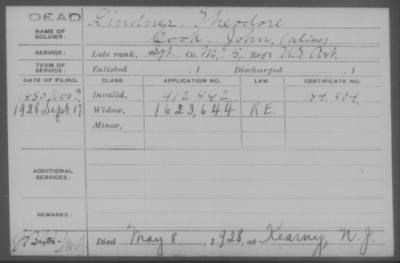 DEAD
NAME OF SOLDIER: Lindner, Theodore
Cook, John, (alias)
SERVICE: Late rank, Sgt. Co. M, 5, Reg't U.S. Art.
TERM OF SERVICE: Enlisted , 1 Discharged , 1
DATE OF FILING. CLASS. APPLICATION NO. LAW. CERTIFICATE NO.
1880 Nov 9 Invalid,
1928 Sept. 17 Widow, 1623,644 R E
Minor,
ADDITIONAL SERVICES:
REMARKS:
Died May 8, 1928, at Kearny, N. J.